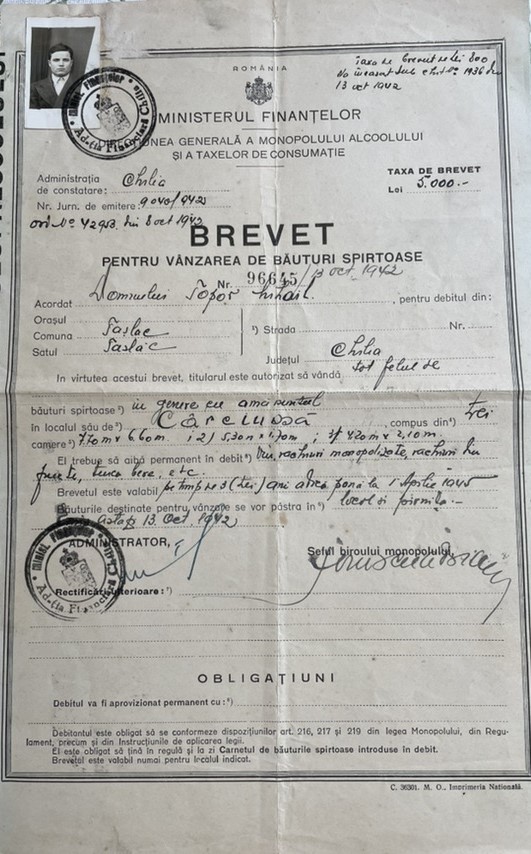 Taxa de brevet de lei 800
13 oct 1942
ROMÂNIA
MINISTERUL FINANȚELOR
DIRECȚIUNEA GENERALĂ A MONOPOLULUI ALCOOLULUI
ȘI A TAXELOR DE CONSUMAȚIE
Administrația
de constatare: Chilia
TAXA DE BREVET
Lei 5.000.-
Nr. Jurn. de emitere: 9040/942
8 oct 1942
BREVET
PENTRU VÂNZAREA DE BĂUTURI SPIRTOASE
Nr. 96645 / 13 oct. 1942
Acordat Domnului Topor Mihail, pentru debitul din:
Orașul
Comuna Taslâc
¹) Strada Nr.
Satul Taslâc
Județul Chilia
În virtutea acestui brevet, titularul este autorizat să vândă tot felul de
băuturi spirtoase ²) în genere cu amănuntul
în localul său de ³) Cârciumă, compus din ⁴) trei
camere ⁵) 7,70 m x 6.60 m. ; 2) 5,30 m x 4,70 m ; 3) 4,20 m x 2,10 m.
El trebue să aibă permanent în debit ⁶) Vin, rachiuri monopolizate, rachiuri din
fructe, țuica bere, etc.
Brevetul este valabil pe timp de 3 (trei) ani adică până la 1 Aprilie 1945
Băuturile destinate pentru vânzare se vor păstra în ⁶) local și pivniță.-
13 Oct. 1942
ADMINISTRATOR,
Șeful biroului monopolului,
Rectificări ulterioare: ⁷)
OBLIGAȚIUNI
Debitul va fi aprovizionat permanent cu: ⁸)
Debitantul este obligat să se conformeze dispozițiunilor art. 216, 217 și 219 din legea Monopolului, din Regu-
lament, precum și din Instrucțiunile de aplicarea legii.
El este obligat să țină în regulă și la zi Carnetul de băuturile spirtoase introduse în debit.
Brevetul este valabil numai pentru localul indicat.
C. 36301. M. O., Imprimeria Națională.